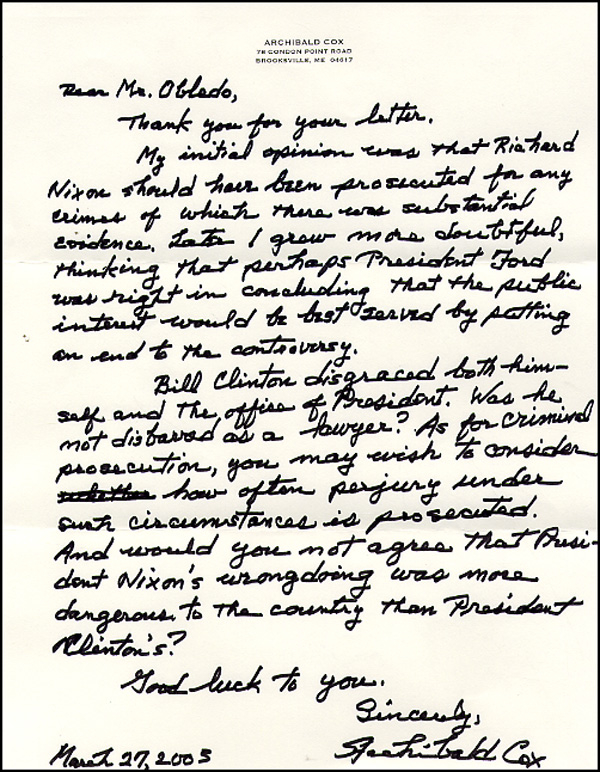 ARCHIBALD COX
78 CONDON POINT ROAD
BROOKSVILLE, ME 04617
Dear Mr. Obledo,
Thank you for your letter.
My initial opinion was that Richard
Nixon should have been prosecuted for any
crimes of which there was substantial
evidence. Later I grew more doubtful,
thinking that perhaps President Ford
was right in concluding that the public
interest would be best served by putting
an end to the controversy.
Bill Clinton disgraced both him-
self and the office of President. Was he
not disbarred as a lawyer? As for criminal
prosecution, you may wish to consider
how often perjury under
such circumstances is prosecuted.
And would you not agree that Presi-
dent Nixon's wrongdoing was more
dangerous to the country than President
Clinton's?
Good luck to you.
Sincerely,
March 27, 2003
Archibald Cox